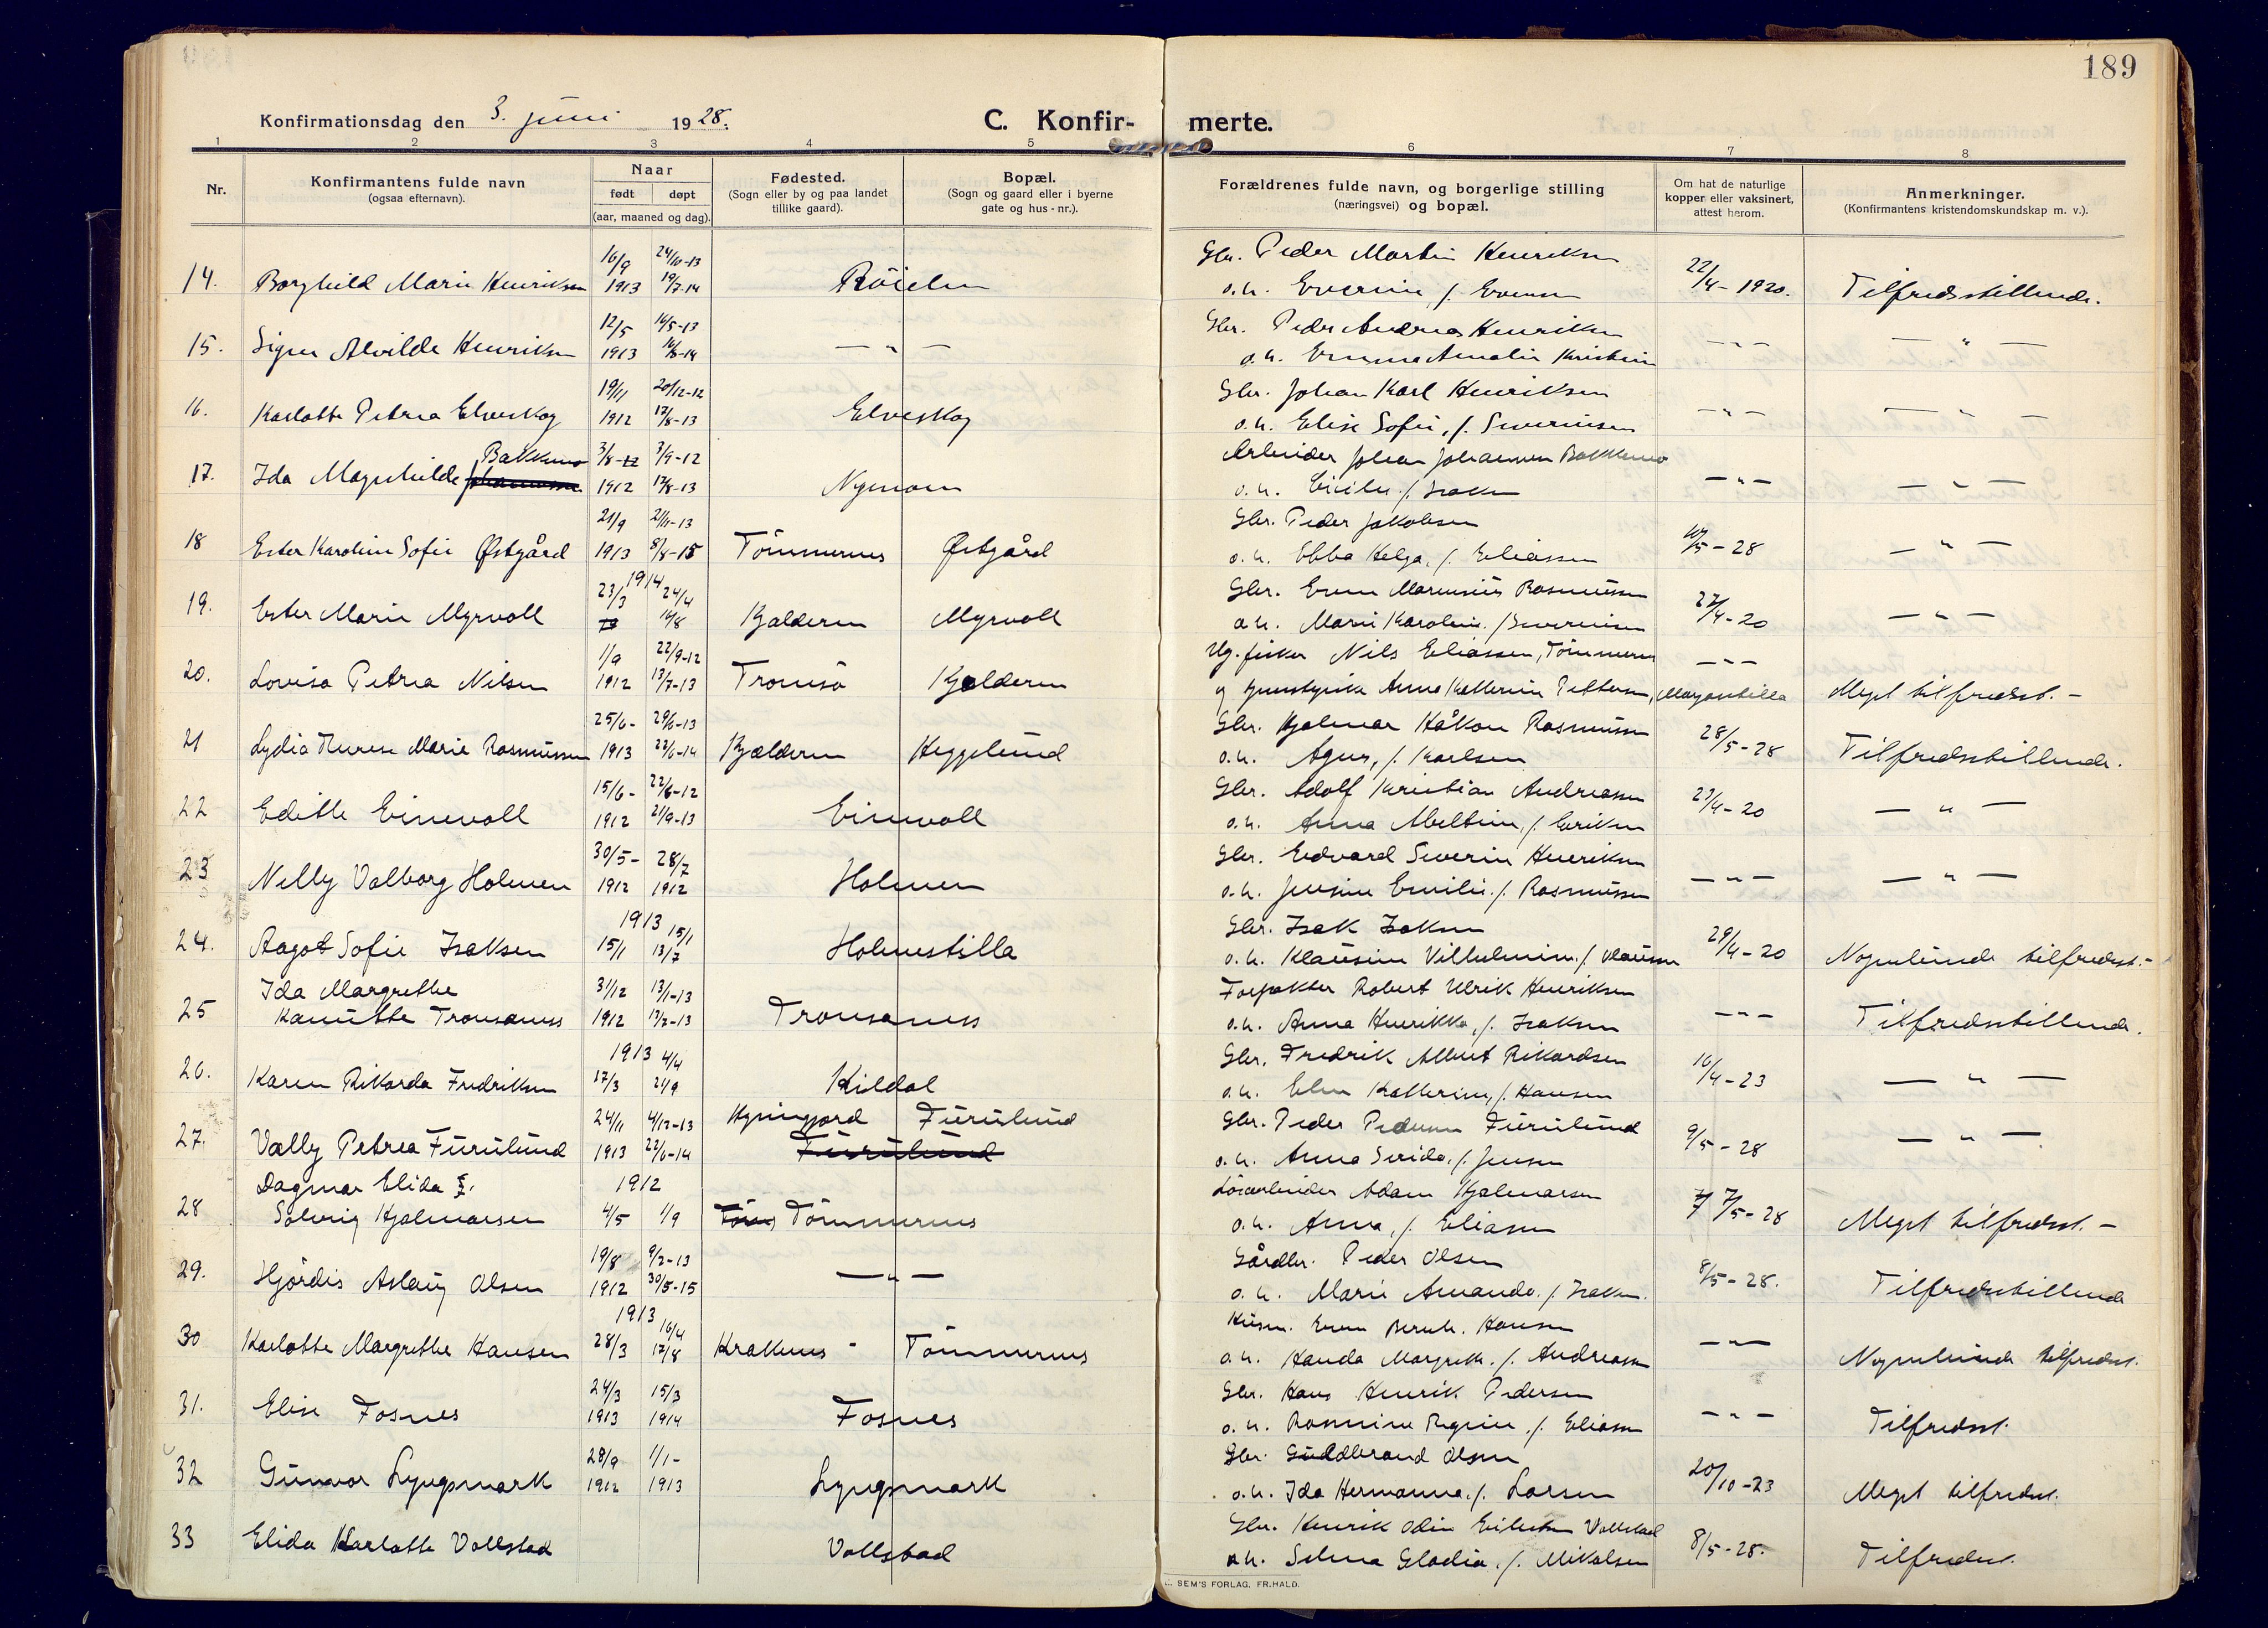 189
Konfirmationsdag den 3. juni 1928.
C. Konfir- merte.
1 2 3 4 5 6 7 8
Nr.
Konfirmantens fulde navn
(ogsaa efternavn).
Naar
født døpt
(aar, maaned og dag).
Fødested.
(Sogn eller by og paa landet
tillike gaard).
Bopæl.
(Sogn og gaard eller i byerne
gate og hus-nr.).
Forældrenes fulde navn, og borgerlige stilling
(næringsvei) og bopæl.
Om hat de naturlige
kopper eller vaksinert,
attest herom.
Anmerkninger.
(Konfirmantens kristendomskundskap m. v.).
16/9 24/10-13 Gbr. Peder Martin Henriksen
14. Borghild Marie Henriksen 1913 19/7-14 Röielen o.h. Evensen 22/4-1920. Tilfredsstillende.
12/5 16/5-13 Gbr. Peder Andreas Henriksen
15. Signe Alvilde Henriksen 1913 — " — o.h. Emma Amalie Kristine — " — — " —
19/11 20/12-12 Gbr. Johan Karl Henriksen
16. Karlotte Petrea Elveskog 1912 17/8-13 Elveskog o.h. Elise Sofie, f. Severinsen — " — — " —
Bakkemo 3/8-12 3/9-12 Arbeider Johan Johannesen Bakkemo
17. Ida Magnhilde Johannesen 1912 17/8-13 Nymoen o.h. f. Isaksen — " — — " —
21/9 21/11-13 Gbr. Peder Jakobsen
18 Ester Karoline Sofie Østgård 1913 8/8-15 Tömmernes Østgård o.h. Ebba Helga, f. Eliassen 10/5-28 — " —
1914
23/3 24/4 Gbr. Even Marensius Rasmussen
19. Ester Marie Myrvoll 13 16/8 Kjelderen Myrvoll o.h. Marie Karoline f. Severinsen 27/4-20 — " —
1/9 22/9-12 Ug. fisker Nils Eliassen, Tömmernes
20. Lovisa Petrea Nilsen 1912 13/7-13 Tromsö Kjelderen og Anna Katherine Pettersen, — " — Meget tilfredsst. —
25/6- 29/6-13 Gbr. Hjalmar Håkon Rasmussen
21 Lydia Therese Marie Rasmussen 1913 22/6-14 Kjælderen Heggelund o.h. Agnes, f. Karlsen 28/5-28 Tilfredsstillende.
15/6- 22/6-12 Gbr. Adolf Kristian Andreassen
22 Edithe Einevoll 1912 21/9-13 Einevoll o.h. Anna Abeltine, f. Eriksen 23/4-20 — " —
30/5- 28/7 Gbr. Edvard Severin Henriksen
23 Nelly Valborg Holmen 1912 1912 Holmen o.h. Jensine Emilie f. Rasmussen — " — — " —
1913
15/1 Gbr. Isak Isaksen
24. Aagot Sofie Isaksen 15/1 13/7 Holmestilla o.h. Klausine Villhelmine f. Klausen 29/4-20 Nogenlunde tilfredsst. —
Ida Margrethe 31/12 13/1-13 Forpakter Robert Ulrik Henriksen
25 Kanutte Tronsanes 1912 13/7-13 Tronsanes o.h. Anna Henrikka, f. Isaksen — " — Tilfredsstillende.
1913 4/4 Gbr. Fredrik Albert Rikardsen
26. Karen Rikarda Fredriksen 17/3 21/9 Kildal o.h. Elen Katherine, f. Hansen 16/4-23 — " —
24/11 4/12-13 Furulund Gbr. Peder Pedersen Furulund
27. Vally Petrea Furulund 1913 22/6-14 Furulund o.h. Anna Serida, f. Jensen 9/5-28 — " —
Dagmar Elida 1912 Løsarbeider Adam Hjalmarsen
28 Solveig Hjalmarsen 4/5 1/9 Tömmernes o.h. Anna, f. Eliassen 7/5-28 Meget tilfredsst. —
19/8 9/2-13 Gårdbr. Peder Olsen
29. Hjördis Aslaug Olsen 1912 30/5-15 — " — o.h. Marie Amanda f. Isaksen 8/5-28. Tilfredsstillende
1913
16/4 Husm. Even Bernh. Hansen
30 Karlotte Margrethe Hansen 28/3 17/8 Kraknes - Tömmernes o.h. Handa Margreth. f. Andreassen — " — Nogenlunde tilfredsst.
24/3 15/3 Gbr. Hans Henrik Pedersen
31. Elise Fosnes 1913 1914 Fosnes o.h. Rasmine Regine, f. Eliassen — " — Tilfredsst.
28/9 1/1- Gbr. Guddbrand Olsen
32 Gunvor Lyngsmark 1912 1913 Lyngsmark o.h. Ida Hermanna, f. Larsen 20/10-23 Meget tilfredsst.
Gbr. Henrik Odin Eilertsen Vollstad
33 Elida Karlotte Vollstad Vollstad o.h. Selma Gladia, f. Mikalsen 8/5-28. Tilfredsst.
SEM'S FORLAG, FR. HALD.